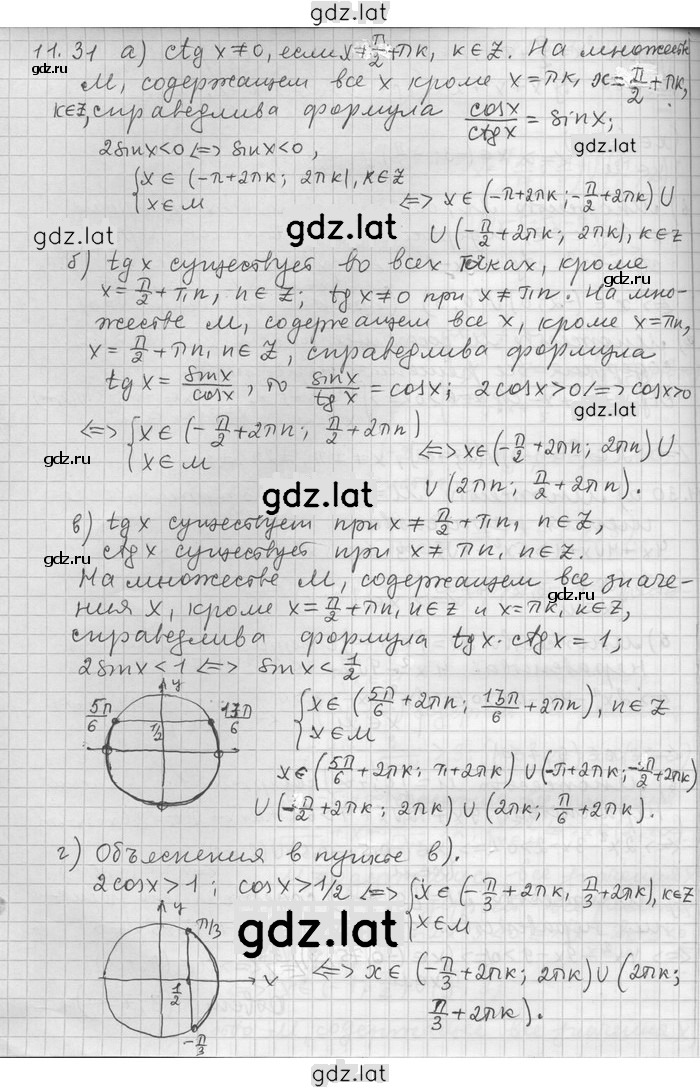 gdz.lat
11.31 а) ctg x ≠ 0, если x ≠ π/2 + πk, k ∈ Z. На множестве
M, содержащем все x кроме x = πk, x = π/2 + πk,
k ∈ Z, справедлива формула cosx/ctgx = sinx;
2sinx < 0 ⇔ sinx < 0,
{ x ∈ (-π+2πk; 2πk), k ∈ Z
{ x ∈ M
⇔ x ∈ (-π+2πk; -π/2+2πk) ∪
∪ (-π/2+2πk; 2πk), k ∈ Z
gdz.lat
gdz.lat
gdz.lat
б) tg x существует во всех точках, кроме
x = π/2 + πn, n ∈ Z; tg x ≠ 0 при x ≠ πn. На мно-
жестве M, содержащем все x, кроме x = πn,
x = π/2 + πn, n ∈ Z, справедлива формула
tg x = sinx/cosx, то sinx/tg x = cosx; 2cosx > 0 ⇔ cosx > 0
gdz.lat
⇔ { x ∈ (-π/2 + 2πn; π/2 + 2πn)
{ x ∈ M
⇔ x ∈ (-π/2 + 2πn; 2πn) ∪
∪ (2πn; π/2 + 2πn).
gdz.lat
gdz.lat
в) tg x существует при x ≠ π/2 + πn, n ∈ Z,
ctg x существует при x ≠ πn, n ∈ Z.
На множестве M, содержащем все значе-
ния x, кроме x = π/2 + πn, n ∈ Z и x = πk, k ∈ Z,
справедлива формула tgx · ctgx = 1;
2sinx < 1 ⇔ sinx < 1/2
y
5π/6
13π/6
1/2
{ x ∈ (5π/6 + 2πn; 13π/6 + 2πn), n ∈ Z
{ x ∈ M
x ∈ (5π/6 + 2πk; π + 2πk) ∪ (-π + 2πk; -π/2 + 2πk)
∪ (-π/2 + 2πk; 2πk) ∪ (2πk; π/6 + 2πk).
г) Объяснения в пункте в).
2cosx > 1; cosx > 1/2 ⇔ { x ∈ (-π/3 + 2πk, π/3 + 2πk), k ∈ Z
{ x ∈ M
gdz.lat
gdz.lat
y
π/3
x
1/2
-π/3
⇔ x ∈ (-π/3 + 2πk; 2πk) ∪ (2πk;
π/3 + 2πk).
gdz.lat